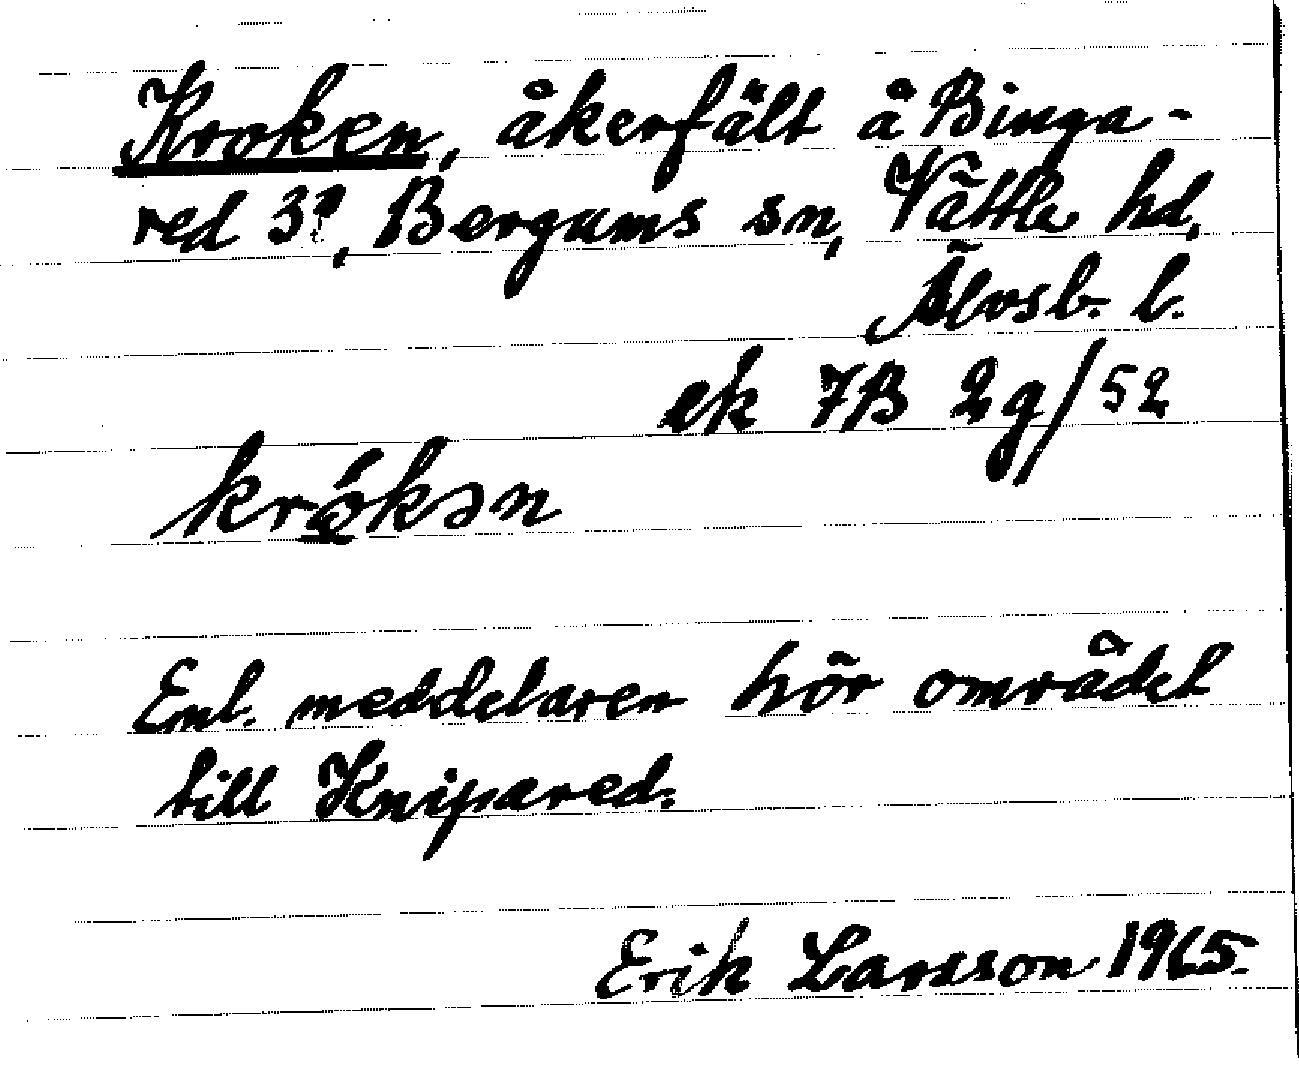 Kroken, åkerfält å Binga-
red 3?, Bergums sn, Vättle hd,
Älvsb. l.
ek 7B 2g/52
krǿkən
Enl. meddelaren hör området
till Knipared.
Erik Larsson 1965.